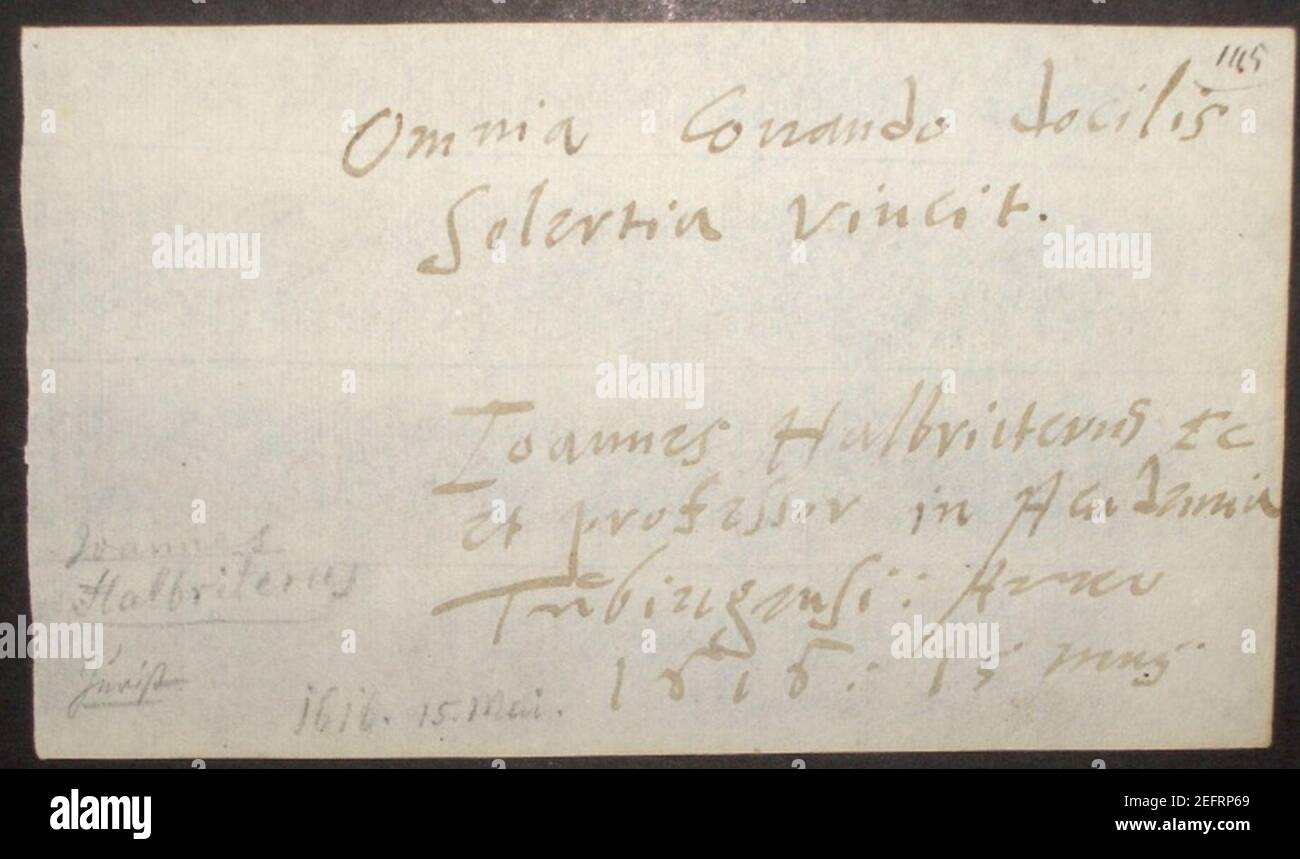 145
Omnia Conando docilis
Solertia vincit.
Ioannes Halbritterus &c
et professor in Academia
Tubingensi: Anno
1616: 15 maij
Joannes
Halbriterus
Jurist
1616. 15. Mai.
alamy
alamy
Image ID: 2EFRP69
www.alamy.com